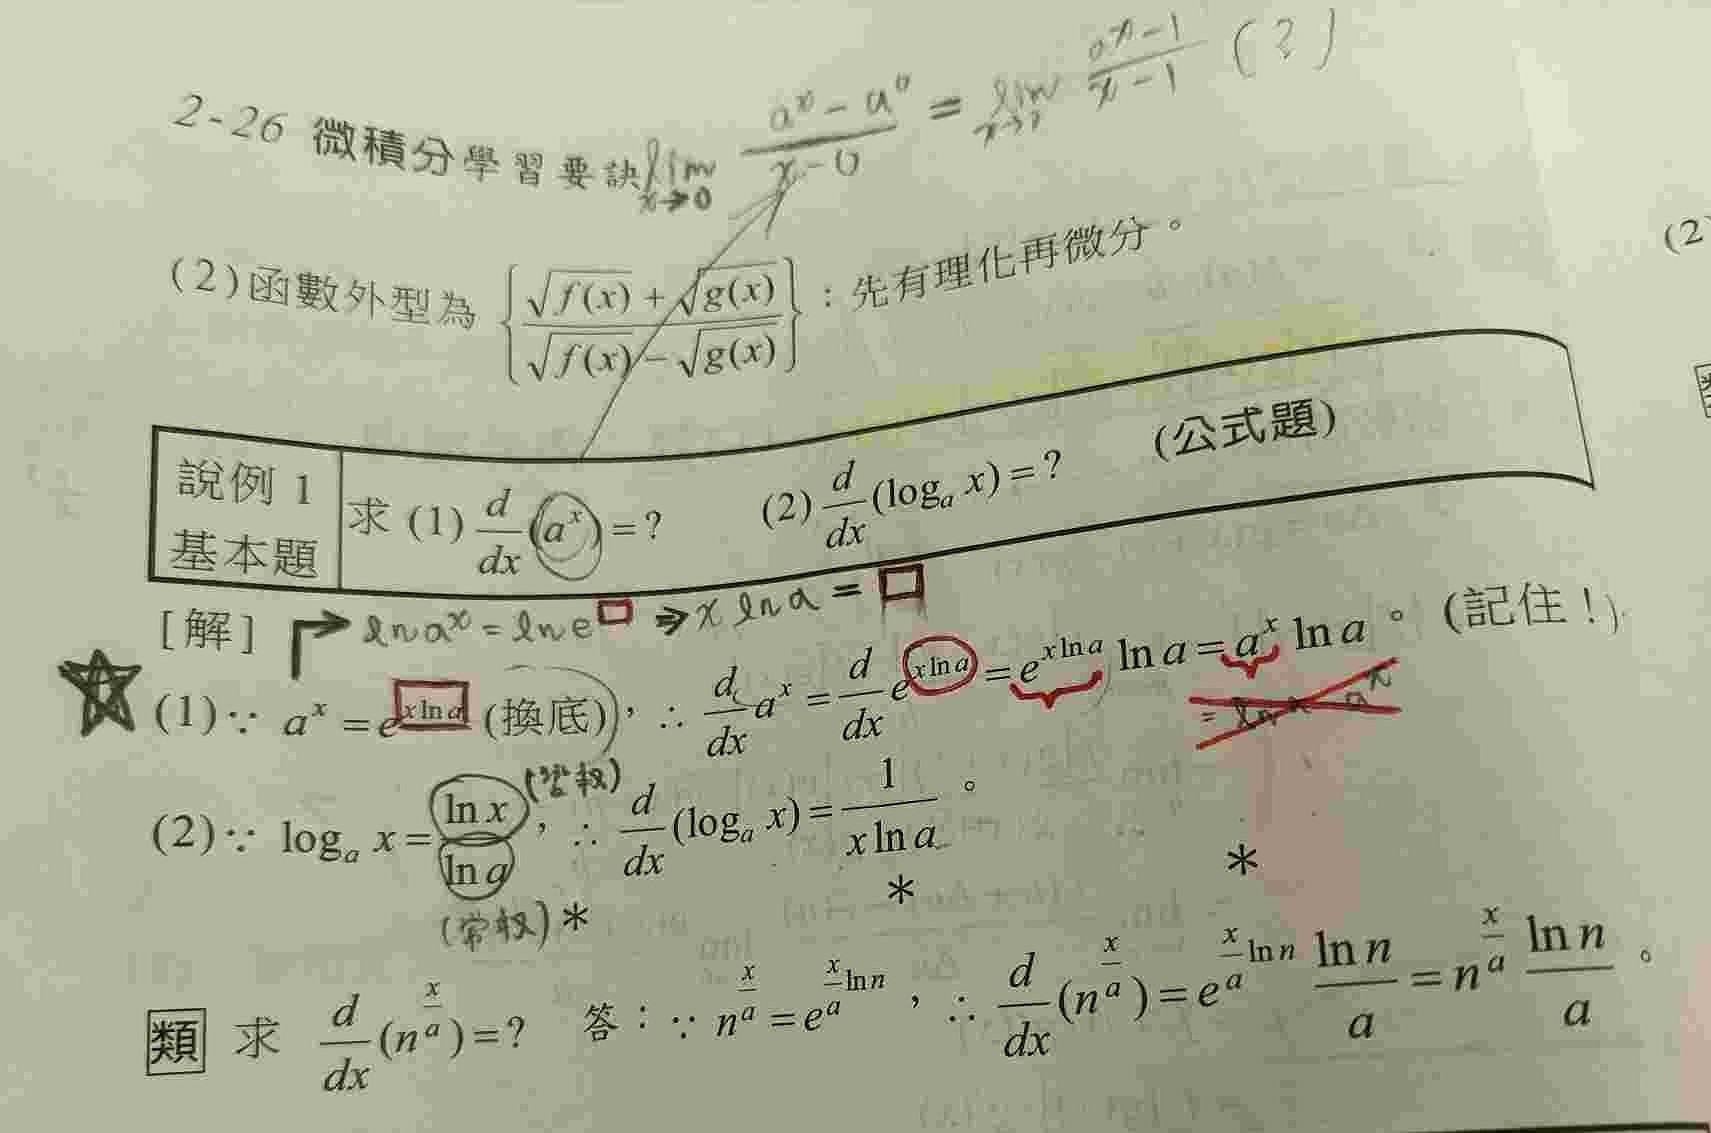 2-26 微積分學習要訣
lim x→0 (a^x - a^0)/(x-0) = lim x→? (a^x - 1)/(x-1) (?)
(2)函數外型為 {(√f(x) + √g(x))/(√f(x) - √g(x))}：先有理化再微分。
說例 1
基本題
求 (1) d/dx (a^x) = ? (2) d/dx (log_a x) = ? (公式題)
[解] ln a^x = ln e^□ ⇒ x ln a = □
(1)∵ a^x = e^(x ln a) (換底)，∴ d/dx a^x = d/dx e^(x ln a) = e^(x ln a) ln a = a^x ln a。(記住！)
(2)∵ log_a x = ln x / ln a，∴ d/dx (log_a x) = 1/(x ln a)。
(常杈) *
*
*
類 求 d/dx (n^(x/a)) = ? 答：∵ n^(x/a) = e^(x/a ln n)，∴ d/dx (n^(x/a)) = e^(x/a ln n) ln n / a = n^(x/a) ln n / a。
(2)